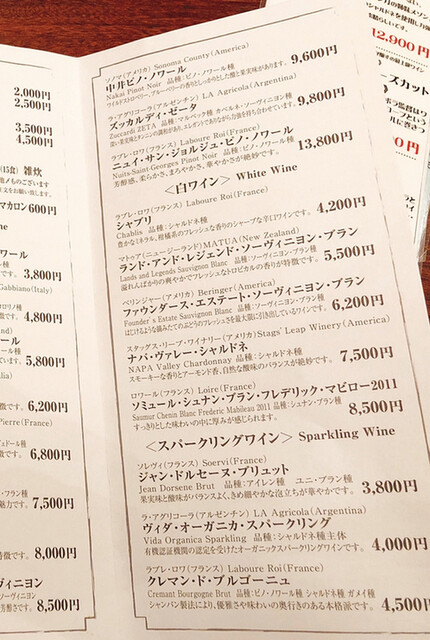 2,000円
2,500円
3,500円
4,500円
(15食) 雑炊
マカロン600円
ワール
3,800円
Gabbiano(Italy)
4,800円
ール
5,800円
6,200円
Pierre(France)
6,800円
7,500円
8,000円
ヴィニヨン
8,500円
ソノマ(アメリカ) Sonoma County(America)
中井ピノ・ノワール
Nakai Pinot Noir 品種:ピノ・ノワール種
ワイルドストロベリー、ブルーベリーの香りとしっかりとした酸と果実味があります。 9,600円
ラ・アグリコーラ(アルゼンチン) LA Agricola(Argentina)
ズッカルディ・ゼータ
Zuccardi ZETA 品種:マルベック種 カベルネ・ソーヴィニヨン種
深い果実味とタンニンの調和があり、エレガントでありながら力強さを持ち合わせています。 9,800円
ラブレ・ロワ(フランス) Laboure Roi(France)
ニュイ・サン・ジョルジュ・ピノ・ノワール
Nuits-Saint-Georges Pinot Noir 品種:ピノ・ノワール種
芳醇感、柔らかさ、まろやかさ、華やかさが絶妙です。 13,800円
<白ワイン> White Wine
ラブレ・ロワ(フランス) Laboure Roi(France)
シャブリ
Chablis 品種:シャルドネ種
豊かなミネラル、柑橘系のフレッシュな香りのシャープな辛口ワインです。 4,200円
マトゥア(ニュージーランド) MATUA(New Zealand)
ランド・アンド・レジェンド・ソーヴィニヨン・ブラン
Lands and Legends Sauvignon Blanc 品種:ソーヴィニヨン・ブラン種
溢れんばかりの爽やかでフレッシュなトロピカルの香りが特徴です。 5,500円
ベリンジャー(アメリカ) Beringer(America)
ファウンダース・エステート・ソーヴィニヨン・ブラン
Founder's Estate Sauvignon Blanc 品種:ソーヴィニヨン・ブラン種
はじけるような摘みたてのぶどうのフレッシュさを最大限に引き出しているワインです。 6,200円
スタッグス・リープ・ワイナリー(アメリカ)Stags' Leap Winery(America)
ナパ・ヴァレー・シャルドネ
NAPA Valley Chardonnay 品種:シャルドネ種
スモーキーな香りとアーモンド香、自然な酸味のバランスが絶妙です。 7,500円
ロワール(フランス) Loire(France)
ソミュール・シュナン・ブラン・フレデリック・マビロー2011
Saumur Chenin Blanc Frederic Mabileau 2011 品種:シュナン・ブラン種
すっきりとした味わいの中に厚みが感じられます。 8,500円
<スパークリングワイン> Sparkling Wine
ソレヴィ(フランス) Soervi(France)
ジャン・ドルセーヌ・ブリュット
Jean Dorsene Brut 品種:アイレン種 ユニ・ブラン種
果実味と酸味がバランスよく、きめ細やかな泡立ちが華やかです。 3,800円
ラ・アグリコーラ(アルゼンチン) LA Agricola(Argentina)
ヴィダ・オーガニカ・スパークリング
Vida Organica Sparkling 品種:シャルドネ種主体
有機認証機関の認定を受けたオーガニックスパークリングワインです。 4,000円
ラブレ・ロワ(フランス) Laboure Roi(France)
クレマン・ド・ブルゴーニュ
Cremant Bourgogne Brut 品種:シャルドネ種 ガメイ種
シャンパン製法により、優雅さや味わいの奥行きのある本格派です。 4,500円
12,900円
ーズカット